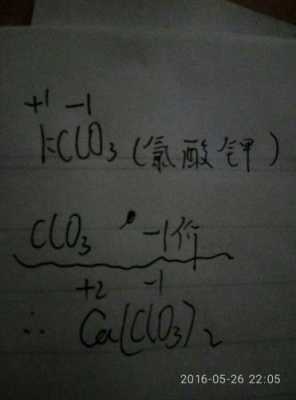 +1 -1
KClO3 (氯酸钾)
ClO3 -1价
+2 -1
∴ Ca(ClO3)2
2016-05-26 22:05